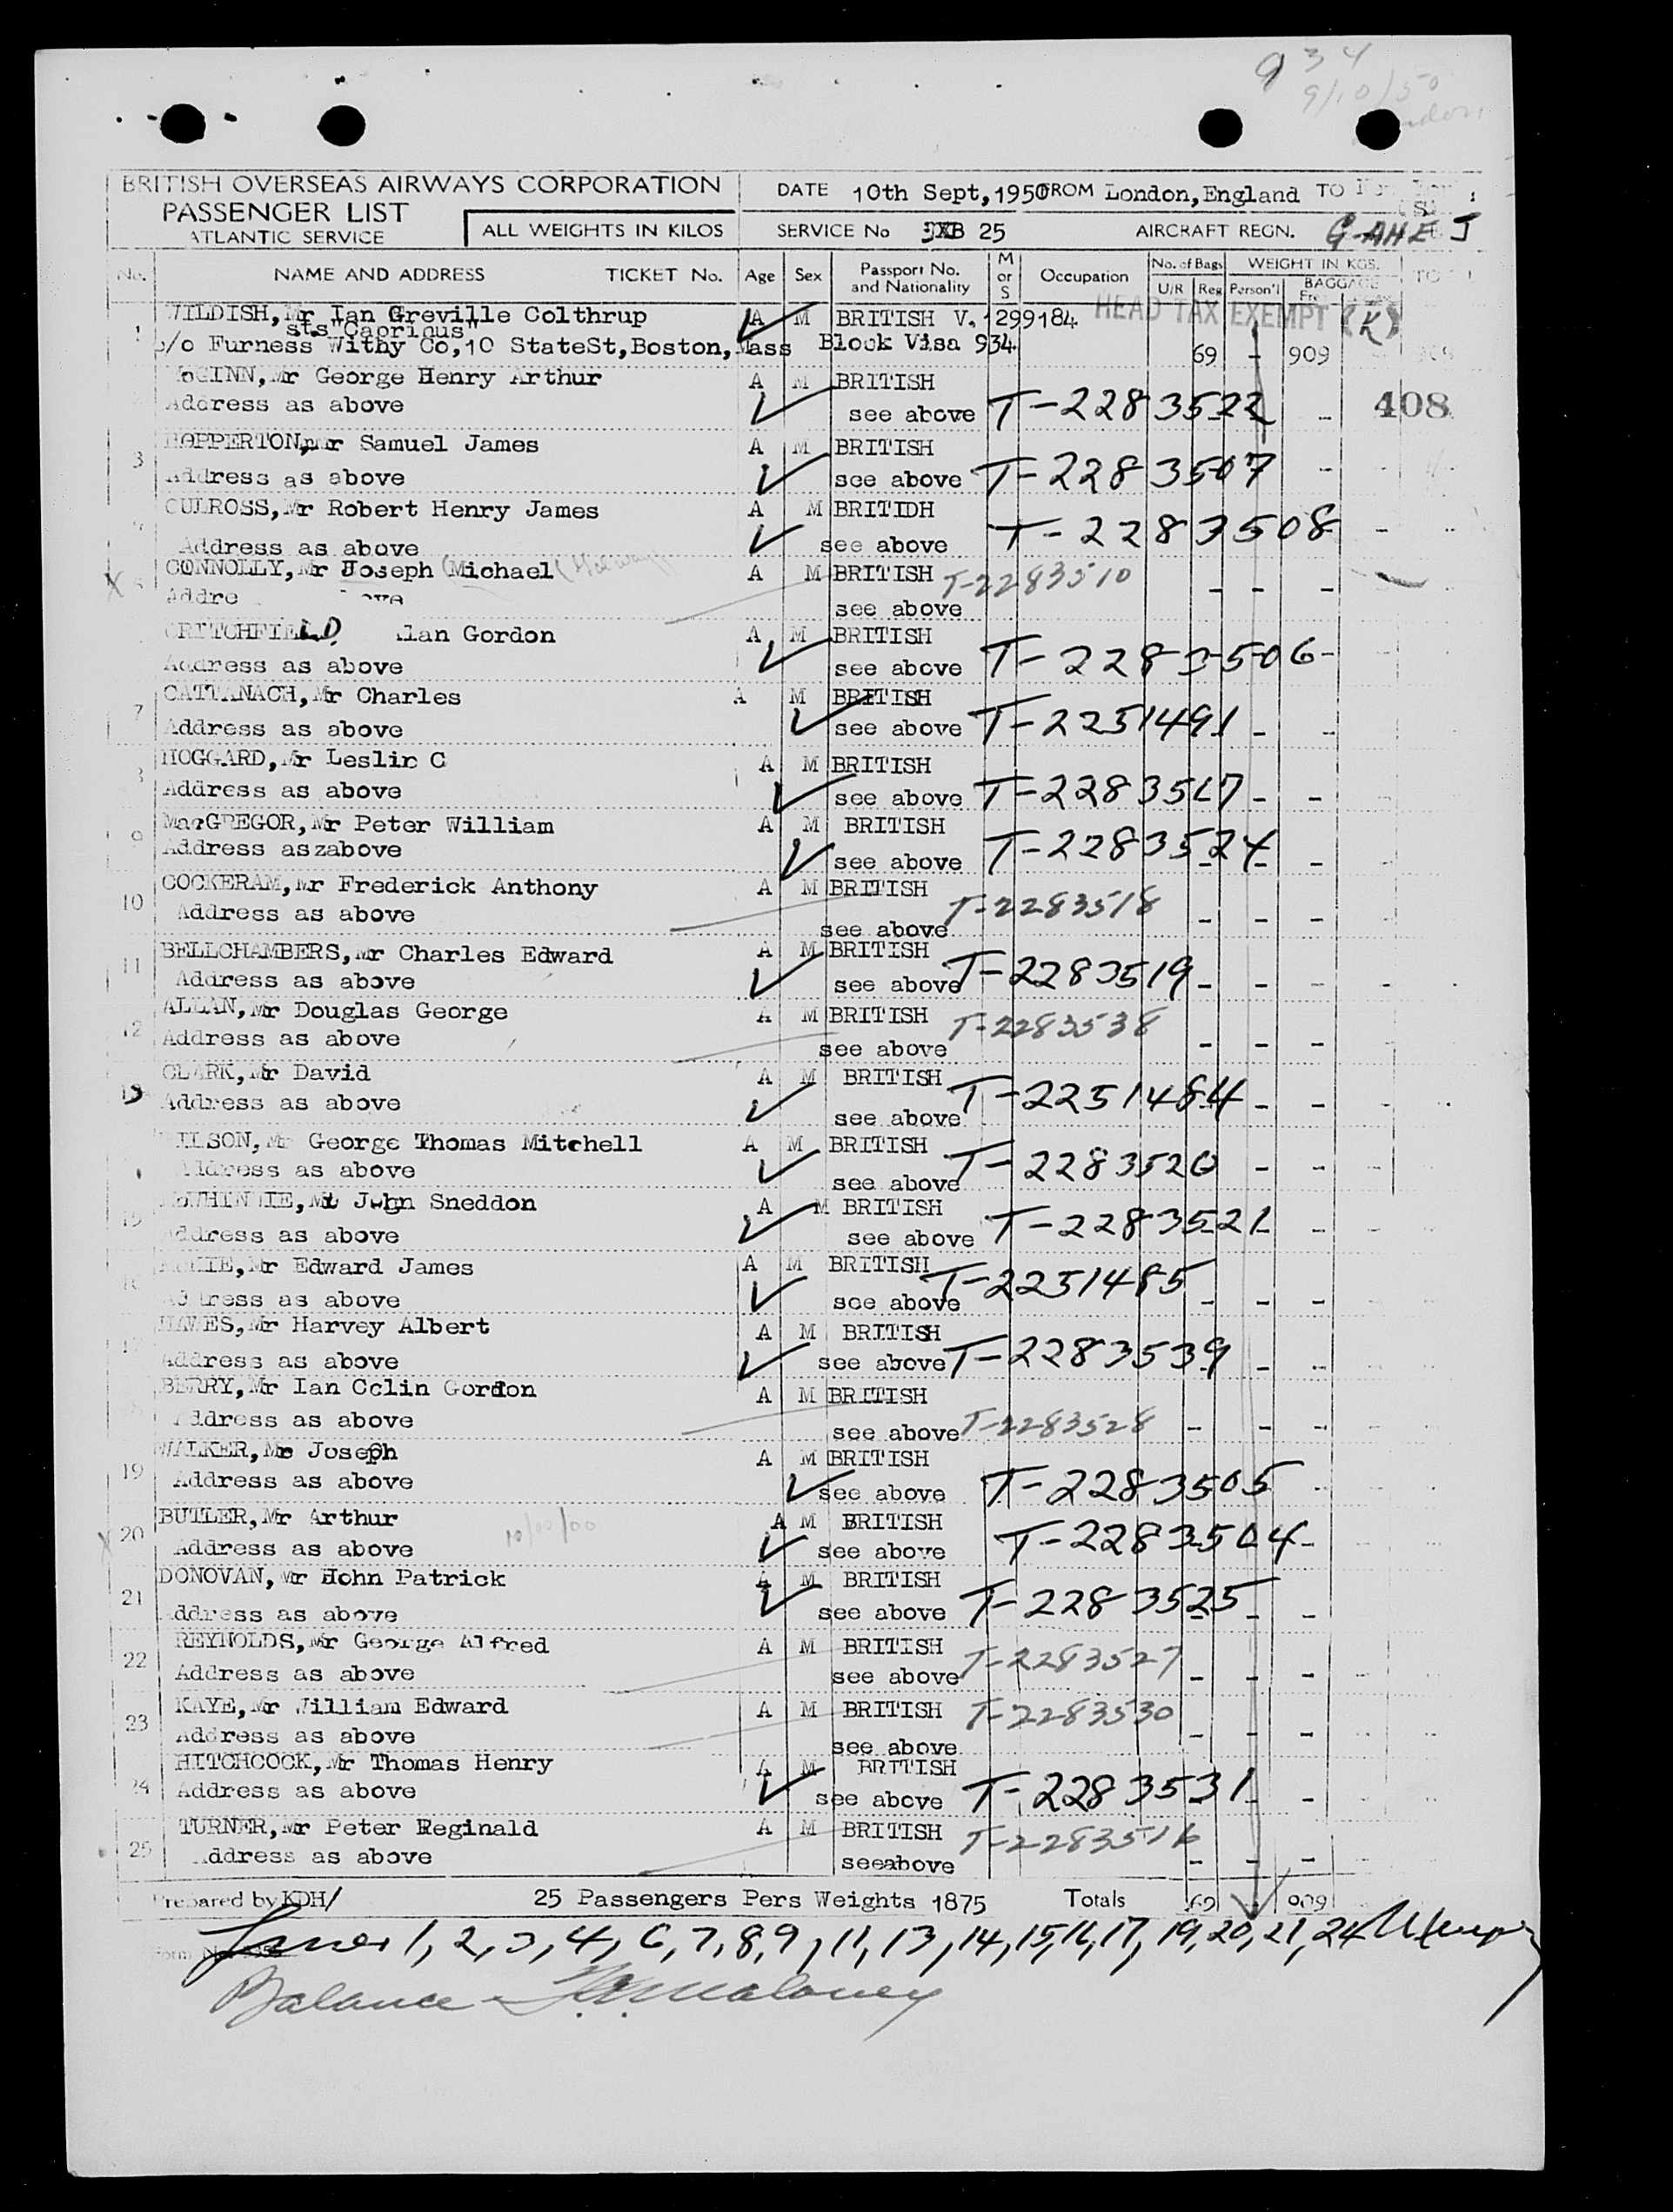 934
9/10/50
BRITISH OVERSEAS AIRWAYS CORPORATION
PASSENGER LIST
ATLANTIC SERVICE
ALL WEIGHTS IN KILOS
DATE 10th Sept,1950 FROM London,England TO
SERVICE No BXB 25 AIRCRAFT REGN. G-AHEJ
No. NAME AND ADDRESS TICKET No. Age Sex Passport No. and Nationality M or S Occupation No. of Bags U/R Reg WEIGHT IN KGS. Person'l BAGGAGE
HEAD TAX EXEMPT (K)
1 WILDISH,Mr Ian Greville Colthrup A M BRITISH V. 1299184
sts"Capricus"
c/o Furness Withy Co,10 StateSt,Boston,Mass Block Visa 934 69 - 909
McGINN,Mr George Henry Arthur A M BRITISH
Address as above see above T-2283522 - 408
3 HOPPERTON,Mr Samuel James A M BRITISH
Address as above see above T-2283507 -
CULROSS,Mr Robert Henry James A M BRITIDH
Address as above see above T-2283508 -
X CONNOLLY,Mr Joseph (Michael A M BRITISH T-2283510
Addre ove see above - - -
CRITCHFIELD, Alan Gordon A M BRITISH
Address as above see above T-2283506 -
7 CATTANACH,Mr Charles A M BRITISH
Address as above see above T-2251491 - -
HOGGARD,Mr Leslie C A M BRITISH
Address as above see above T-2283517 - -
9 MacGREGOR,Mr Peter William A M BRITISH
Address aszabove see above T-2283524 - - -
10 COCKERAM,Mr Frederick Anthony A M BRITISH T-2283518
Address as above see above - - -
11 BELLCHAMBERS,Mr Charles Edward A M BRITISH
Address as above see above T-2283519 - - -
12 ALLAN,Mr Douglas George A M BRITISH T-2283538
Address as above see above - - -
13 CLARK,Mr David A M BRITISH
Address as above see above T-2251484 - -
WILSON,Mr George Thomas Mitchell A M BRITISH
Address as above see above T-2283520 - -
15 John Sneddon A M BRITISH
Address as above see above T-2283521 -
Mr Edward James A M BRITISH
Address as above see above T-2251485 - - -
HAWES,Mr Harvey Albert A M BRITISH
Address as above see above T-2283539 - -
BERRY,Mr Ian Colin Gordon A M BRITISH
Address as above see above T-2283528 - - -
19 WALKER,Mr Joseph A M BRITISH
Address as above see above T-2283505 -
X 20 BUTLER,Mr Arthur A M BRITISH
Address as above see above T-2283504 -
21 DONOVAN,Mr Hohn Patrick A M BRITISH
Address as above see above T-2283525 - -
22 REYNOLDS,Mr George Alfred A M BRITISH
Address as above see above T-2283527 - - -
23 KAYE,Mr William Edward A M BRITISH T-2283530
Address as above see above - - -
24 HITCHCOCK,Mr Thomas Henry A M BRITISH
Address as above see above T-2283531 -
25 TURNER,Mr Peter Reginald A M BRITISH T-2283516
Address as above seeabove - - -
Prepared by KDH/ 25 Passengers Pers Weights 1875 Totals 69 - 909
1, 2, 3, 4, 6, 7, 8, 9, 11, 13, 14, 15, 16, 17, 19, 20, 21, 24
Balance - Maloney